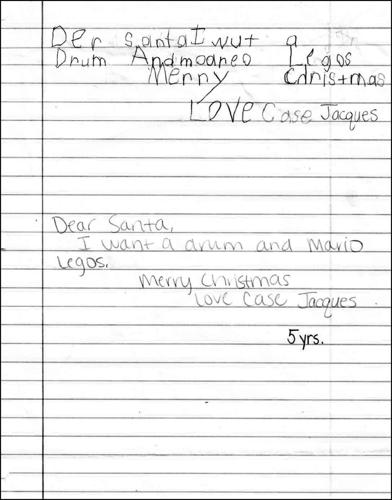 Der santa I wut a
Drum And moareo Legos
Merry Christmas
LOVE Case Jacques
Dear Santa,
I want a drum and Mario
Legos.
Merry Christmas
Love Case Jacques
5 yrs.